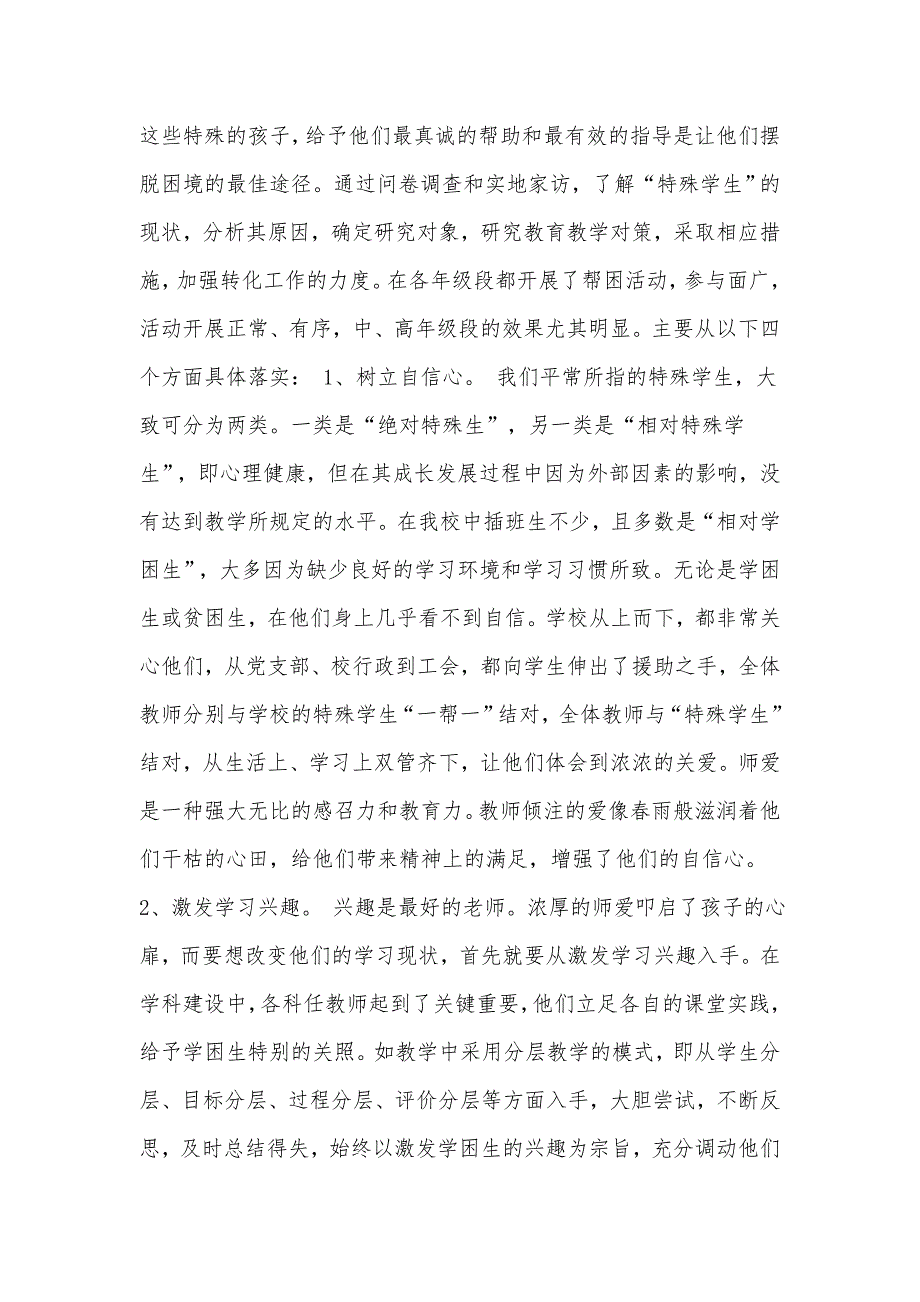 这些特殊的孩子，给予他们最真诚的帮助和最有效的指导是让他们摆
脱困境的最佳途径。通过问卷调查和实地家访，了解“特殊学生”的
现状，分析其原因，确定研究对象，研究教育教学对策，采取相应措
施，加强转化工作的力度。在各年级段都开展了帮困活动，参与面广，
活动开展正常、有序，中、高年级段的效果尤其明显。主要从以下四
个方面具体落实： 1、树立自信心。 我们平常所指的特殊学生，大
致可分为两类。一类是“绝对特殊生”，另一类是“相对特殊学
生”，即心理健康，但在其成长发展过程中因为外部因素的影响，没
有达到教学所规定的水平。在我校中插班生不少，且多数是“相对学
困生”，大多因为缺少良好的学习环境和学习习惯所致。无论是学困
生或贫困生，在他们身上几乎看不到自信。学校从上而下，都非常关
心他们，从党支部、校行政到工会，都向学生伸出了援助之手，全体
教师分别与学校的特殊学生“一帮一”结对，全体教师与“特殊学生”
结对，从生活上、学习上双管齐下，让他们体会到浓浓的关爱。师爱
是一种强大无比的感召力和教育力。教师倾注的爱像春雨般滋润着他
们干枯的心田，给他们带来精神上的满足，增强了他们的自信心。
2、激发学习兴趣。 兴趣是最好的老师。浓厚的师爱叩启了孩子的心
扉，而要想改变他们的学习现状，首先就要从激发学习兴趣入手。在
学科建设中，各科任教师起到了关键重要，他们立足各自的课堂实践，
给予学困生特别的关照。如教学中采用分层教学的模式，即从学生分
层、目标分层、过程分层、评价分层等方面入手，大胆尝试，不断反
思，及时总结得失，始终以激发学困生的兴趣为宗旨，充分调动他们